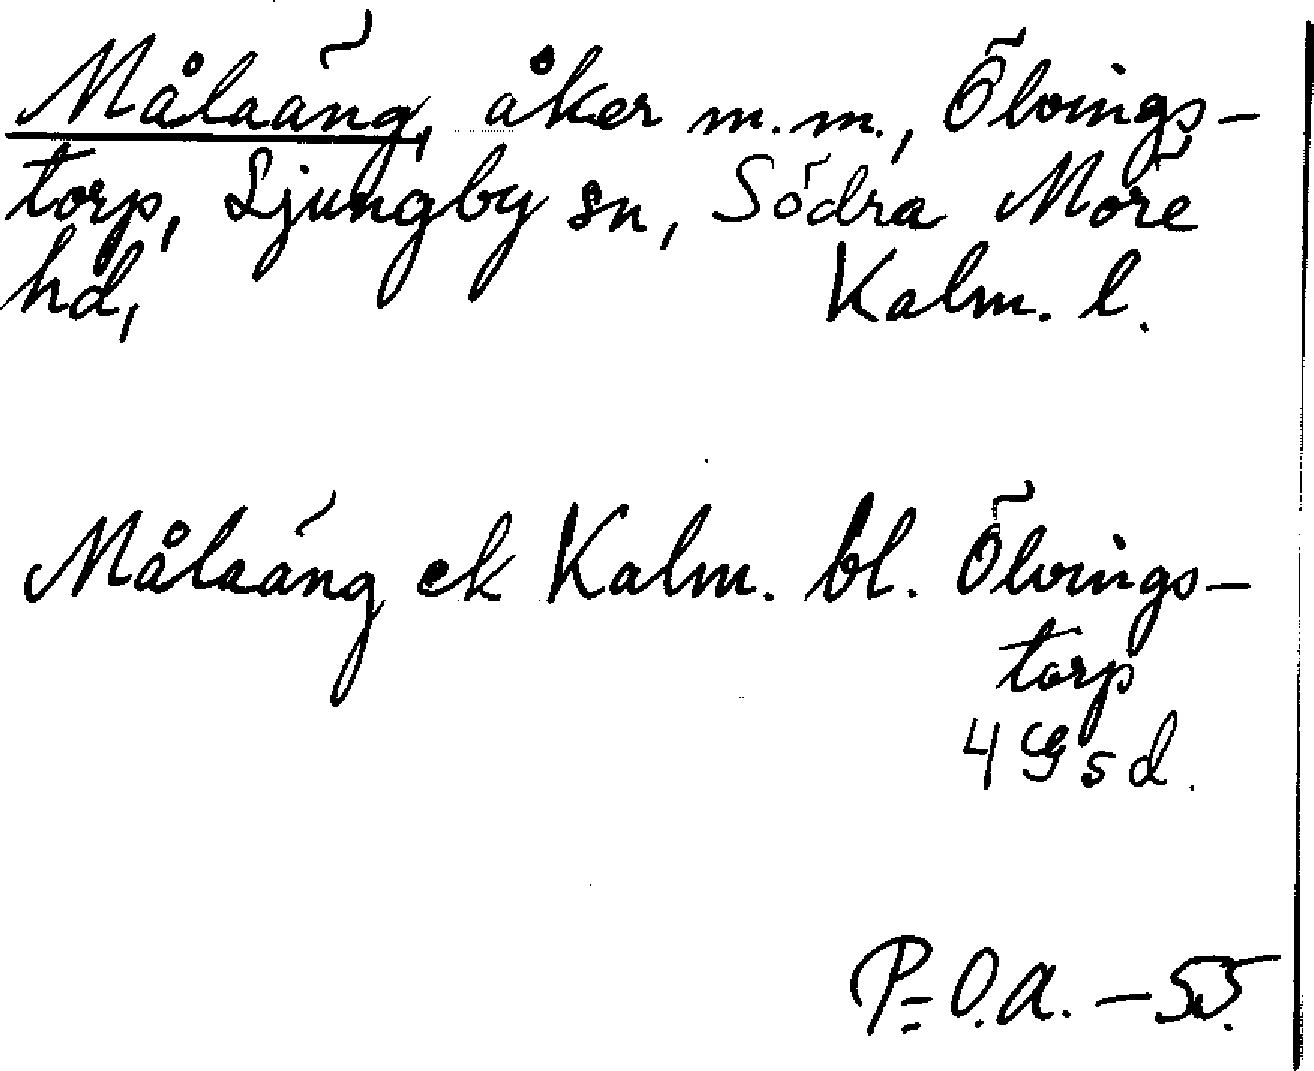 Målaäng, åker m.m., Ölvings-
torp, Ljungby sn, Södra Möre
hd, Kalm. l.
Målaäng ek Kalm. bl. Ölvings-
torp
4 G s d.
P-O.A. - 55.